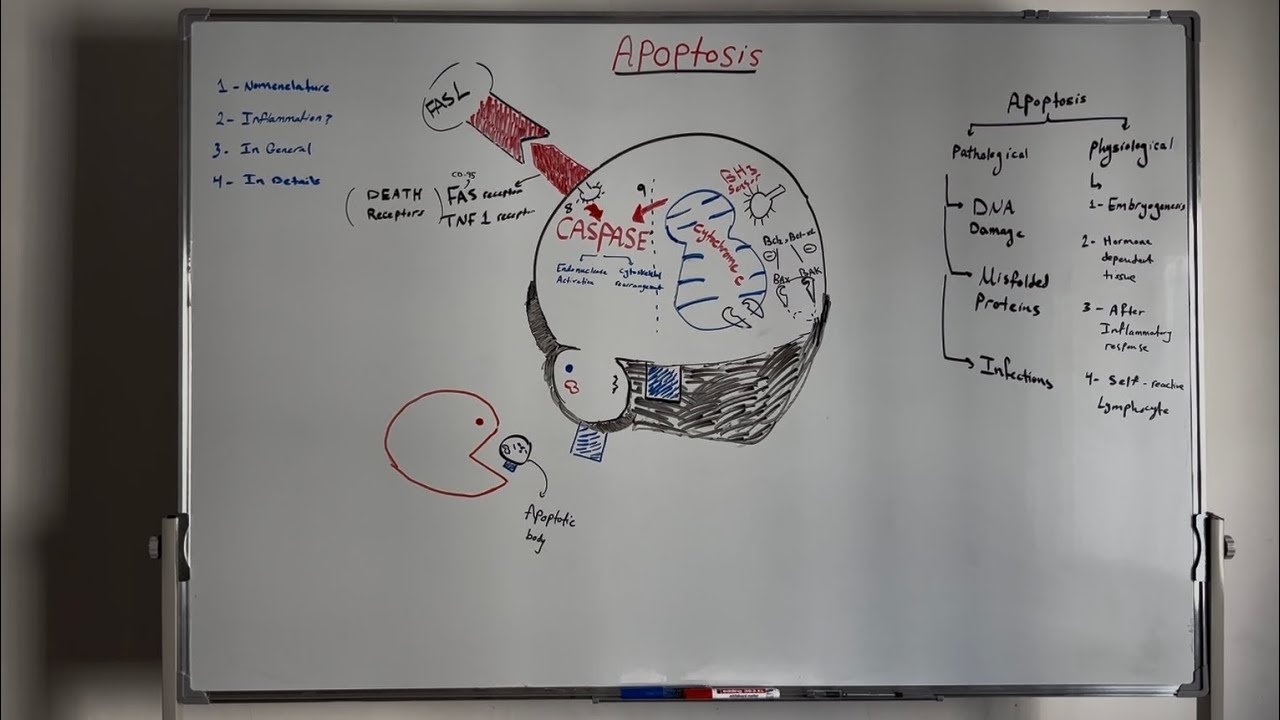 APoptosis
1 - Nomenclature
2 - Inflammation?
3 - In General
4 - In Details
FASL
CD-95
DEATH
Receptors
FAS receptor
TNF 1 receptor
8
9
CASPASE
Endonuclease
Activation
cytoskeletal
rearrangement
Cytochrome c
BH3
Sensor
Bcl2, Bcl-xL
BAX
BAK
Apoptotic
body
Apoptosis
Pathological
DNA
Damage
Misfolded
Proteins
Infections
Physiological
1- Embryogenesis
2- Hormone
dependent
tissue
3 - After
Inflammatory
response
4- Self-reactive
Lymphocyte